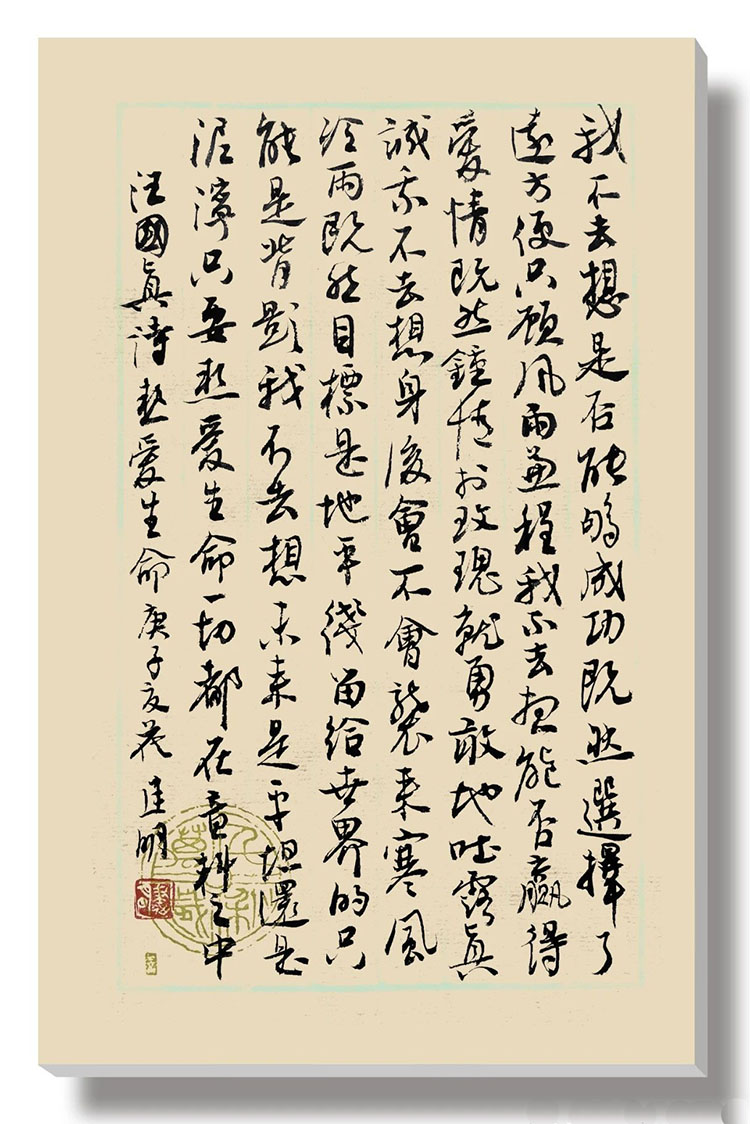 我不去想是否能夠成功既然選擇了
遠方便只顧风雨兼程我不去想能否贏得
愛情既然鍾情於玫瑰就勇敢地吐露真
誠我不去想身後會不會襲来寒風
冷雨既然目標是地平綫留给世界的只
能是背影我不去想未来是平坦還是
泥濘只要熱愛生命一切都在意料之中
汪國真詩熱愛生命庚子夏茂佳明